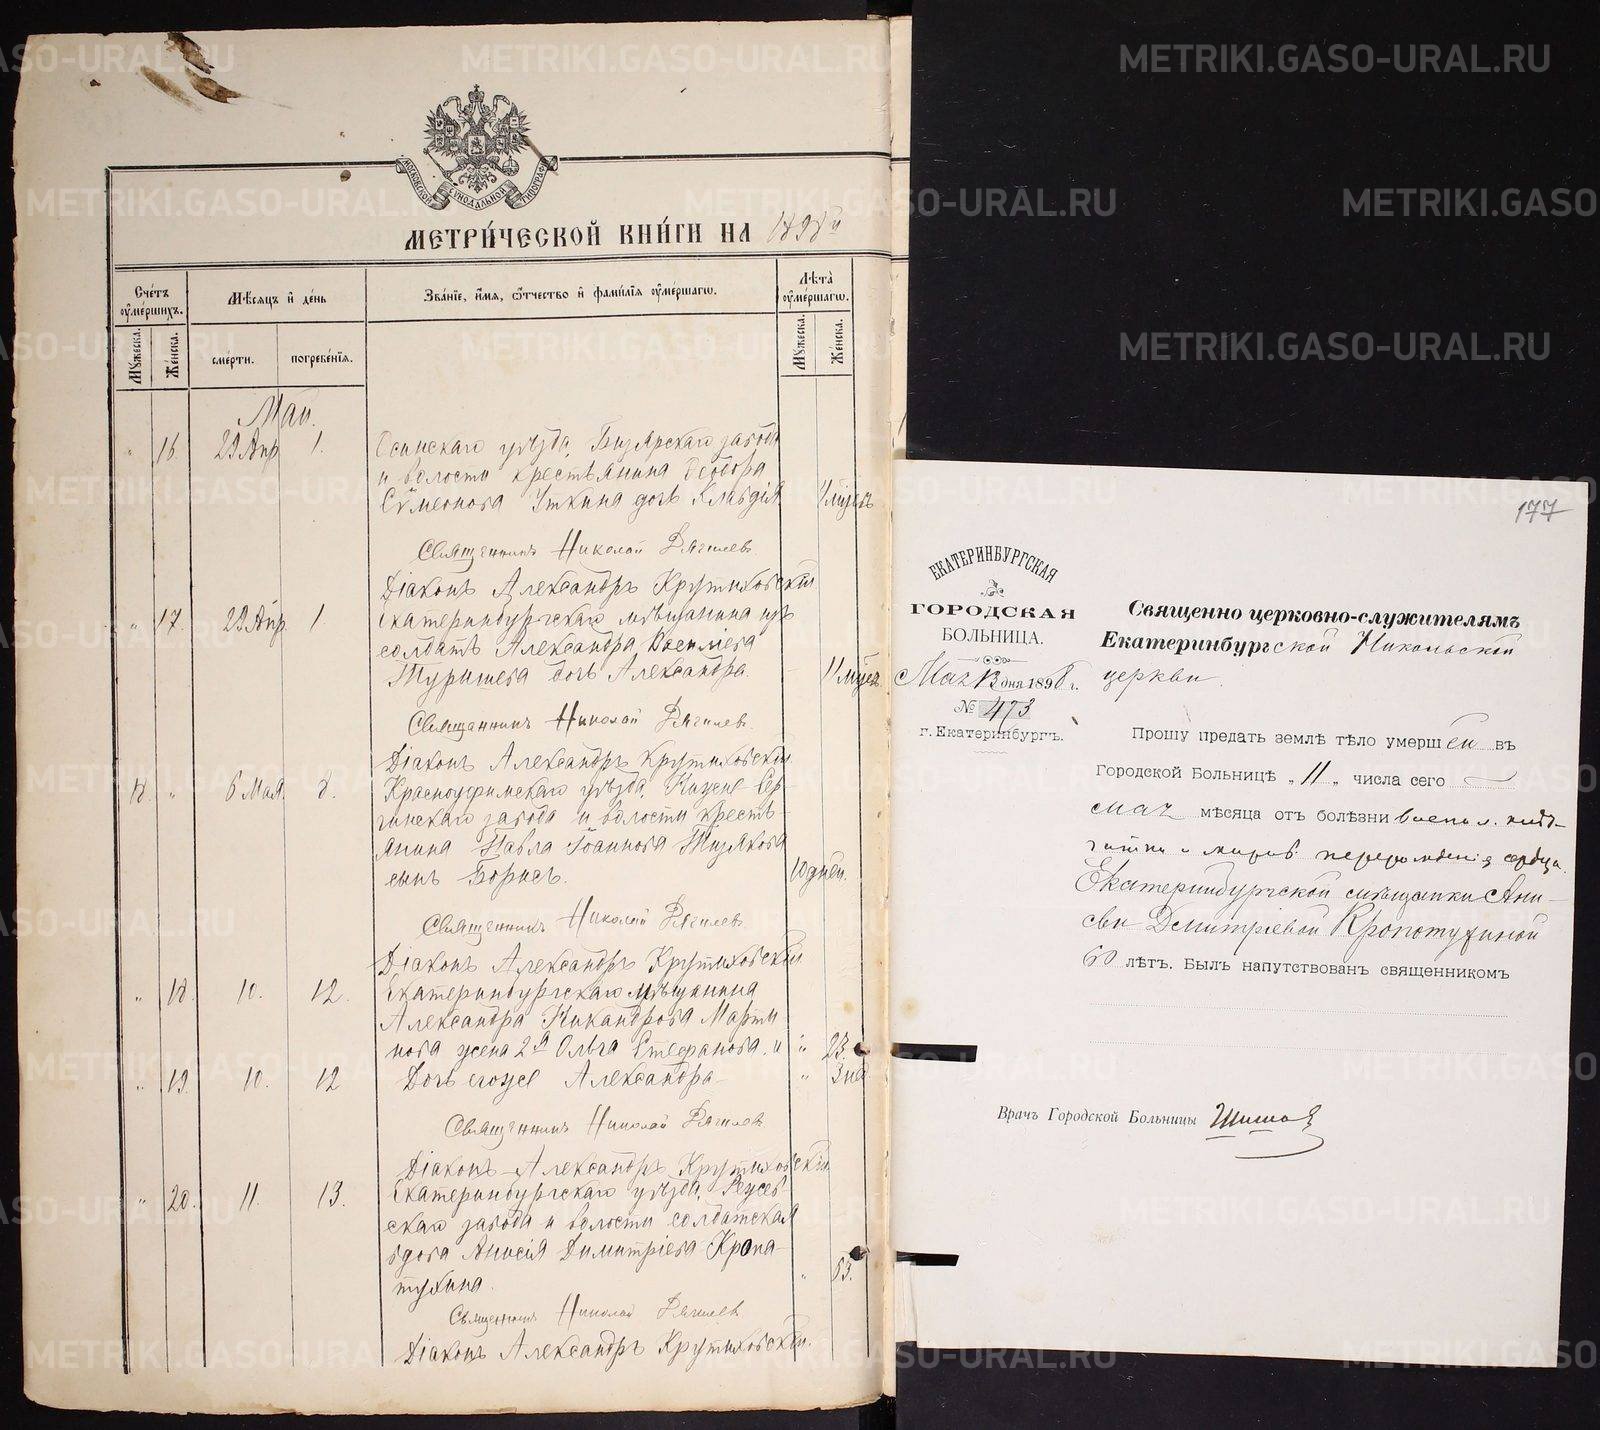 МОСКОВСКОЙ СѴНОДАЛЬНОЙ ТИПОГРАФІИ
МЕТРИ́ЧЕСКОЙ КНИ́ГИ НА 1898й
Сче́тъ ᲂу҆ме́ршихъ.
Мꙋ́жеска.
Же́нска.
Мѣ́сяцъ и҆ де́нь
сме́рти.
погребе́нїѧ.
Зва́нїе, и҆́мѧ, ѻ҆́тчество и҆ фами́лїѧ ᲂу҆ме́ршагѡ.
Лѣ́та ᲂу҆ме́ршагѡ.
Мꙋ́жеска.
Же́нска.
Май.
" 16 29 Апр 1. Осинскаго уѣзда, Бизярскаго завода
и волости крестьянина Ѳеодора
Сѵмеонова Уткина дочь Клавдія
Священникъ Николай Дягилев
Діаконъ Александръ Крутиховскій.
" 17. 29 Апр. 1. Екатеринбургскаго мѣщанина изъ
солдатъ Александра
дочь Александра. 11 мѣсяц.
Священникъ Николай Дягилев
Діаконъ Александръ Крутиховскій.
18. " 6 Мая. 8. Красноуфимскаго уѣзда, Нижне Сер-
гинскаго завода и волости кресть-
янина Павла Іоаннова Тизякова
сынъ Борисъ. 10 дней.
Священникъ Николай Дягилев
Діаконъ Александръ Крутиховскій
" 18. 10. 12. Екатеринбургскаго мѣщанина
Александра Никандрова Марты
нова жена 2я Ольга Стефанова, и " 23.
" 19. 10. 12 Дочь его же Александра " 3 нед.
Священникъ Николай Дягилев
Діаконъ Александръ Крутиховскій
" 20. 11. 13. Екатеринбургскаго уѣзда, Режев
скаго завода и волости солдатская
вдова Анисія Димитріева Кропа-
тухина. " 63.
Священникъ Николай Дягилев
Діаконъ Александръ Крутиховскій.
177
ЕКАТЕРИНБУРГСКАЯ
ГОРОДСКАЯ
БОЛЬНИЦА.
Мая 13 дня 1898 г.
№ 473
г. Екатеринбургъ.
Священно церковно-служителямъ
Екатеринбургской Никольской
церкви.
Прошу предать землѣ тѣло умершей въ
Городской Больницѣ „ 11 „ числа сего
мая мѣсяца отъ болѣзни воспал.
перерожденія сердца.
Екатеринбургской мѣщанки Ани-
сьи Дмитріевой Кропотухиной
60 лѣтъ. Былъ напутствованъ священникомъ
Врачъ Городской Больницы
METRIKI.GASO-URAL.RU